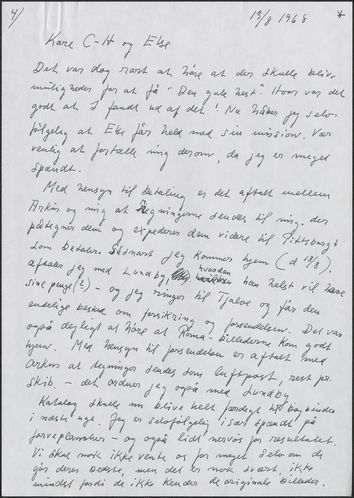 4)
13/8 1968
*
Kære C-H og Else
Det var dog rart at høre at der skulle blive
muligheder for at få "Den gule hest". Hvor var det
godt at I fandt ud af det! Nu håber jeg selv-
følgelig at Else får held med sin mission. Vær
venlig at fortælle mig derom, da jeg er meget
spændt.
Med hensyn til betaling er det aftalt mellem
Arkus og mig at regningerne sendes til mig, der
påtegner dem og expederer dem videre til Pittsburgh
som betaler. Såsnart jeg kommer hjem (d 18/8),
aftaler jeg med Lundby, hvordan han helst vil have
sine penge(?) – og jeg ringer til og får den
endelige besked om forsikring og forsendelse. Det var
også dejligt at høre at Roma-billederne kom godt
hjem. Med hensyn til forsendelsen er aftalt med
Arkus at tegninger sendes som luftpost, rest pr.
skib, – det ordner jeg også med Lundby
Katalog skulle nu blive helt færdigt til bogbinder
i næste uge. Jeg er selvfølgelig især spændt på
farveplancher – og også lidt nervøs for resultatet.
Vi skal nok ikke vente os for meget selvom de
gør deres bedste, men det er nok svært, ikke
mindst fordi de ikke kender de originale billeder.